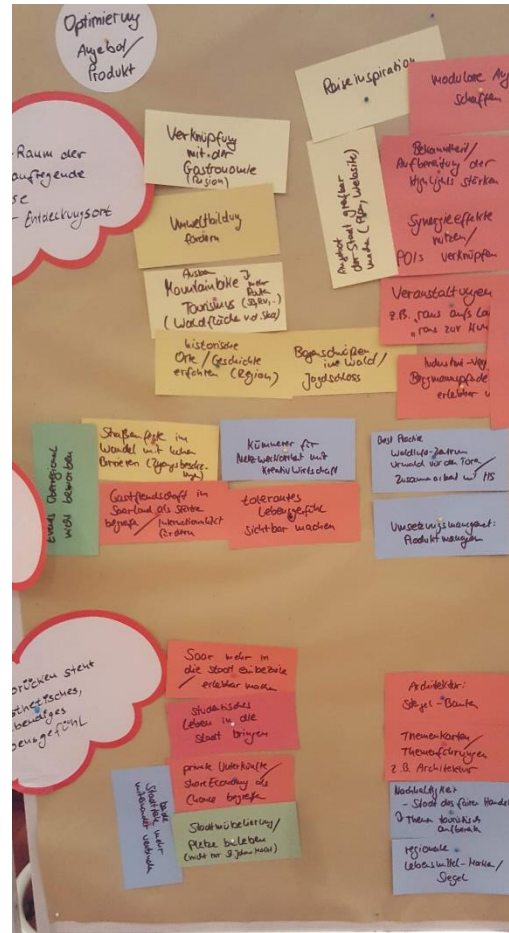 Optimierung
Angebot/
Produkt
Reiseinspiration
modulare An
schaffen
-Raum der
aufregende
se
Entdeckungsort
Verknüpfung
mit der
Gastronomie
(Region)
Umweltbildung
fördern
Ausbau
Mountainbike
Tourismus
(Waldfläche
historische
Orte/Geschichte
erfahren (Region)
Bogenschießen
im Wald/
Jagdschloss
Angebot
der Stadt greifbar
machen (Website)
Bekanntheit/
Aufbereitung der
Highlights stärken
Synergieeffekte
nutzen/
POIs verknüpfen
Veranstaltungen
z.B. "raus aufs La
"raus zur
Bergmannspfade
erlebbar
Events überregional
nicht beworben
Straßenfeste im
Wandel mit hohen
Barrieren
Gastfreundschaft im
Saarland als Stärke
begreifen/
fördern
Kümmerer für
Netzwerkarbeit mit
Kreativwirtschaft
tolerantes
Lebensgefühl
sichtbar machen
Best Practice
Waldinfo-Zentrum
Urwald vor den Toren/
Zusammenarbeit mit HS
Umsetzungsmanagement:
Produktmanager
brücken steht
sthetisches,
bendiges
bensgefühl
Saar mehr in
die Stadt einbeziehen
/ erlebbar machen
studentisches
Leben in die
Stadt bringen
private Unterkünfte/
Share Economy als
Chance begreifen
Stadtmöblierung/
Plätze beleben
(nicht nur St. Johanner Markt)
beide
Stadtteile mehr
miteinander verbinden
Architektur:
Stengel-Bauten
Themenkarten/
Themenführungen
z.B. Architektur
Nachhaltigkeit
- Stadt des fairen Handels
Thema touristisch
aufbereiten
regionale
Lebensmittel-Marken/
Siegel